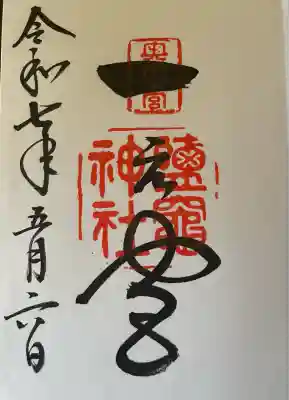 鹽竈
神社
一之宮
令和七年五月六日